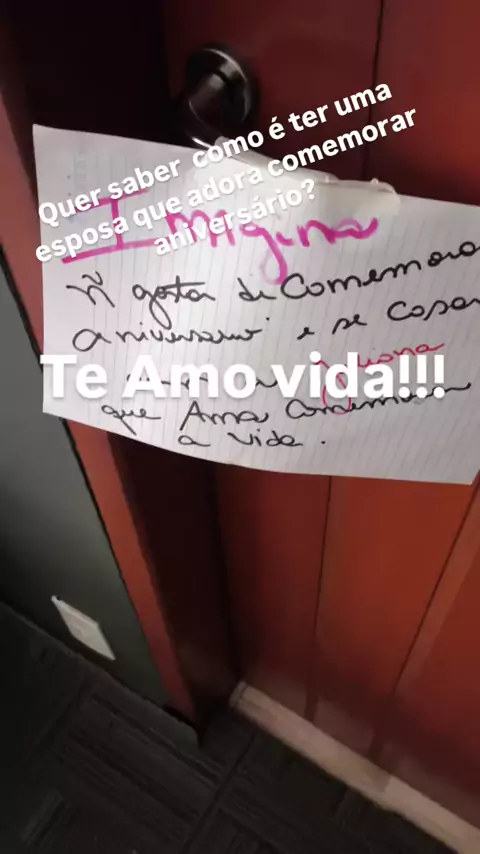 Quer saber como é ter uma
esposa que adora comemorar
aniversário?
Imagina
ñ gosta de Comemora
aniversario e se Casa
Te Amo vida!!!
que Ama Comemorar
a vida.